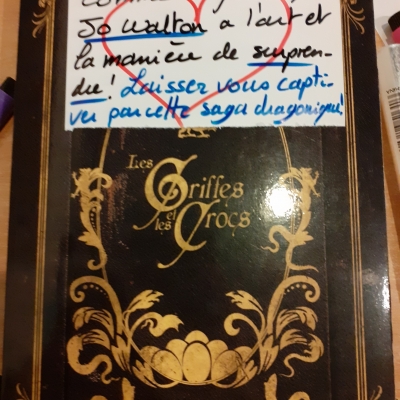 Jo Walton a l'art et
la manière de surpren-
dre! Laisser vous capti-
ver par cette saga dragonique!
Les
Griffes
et
les
Crocs